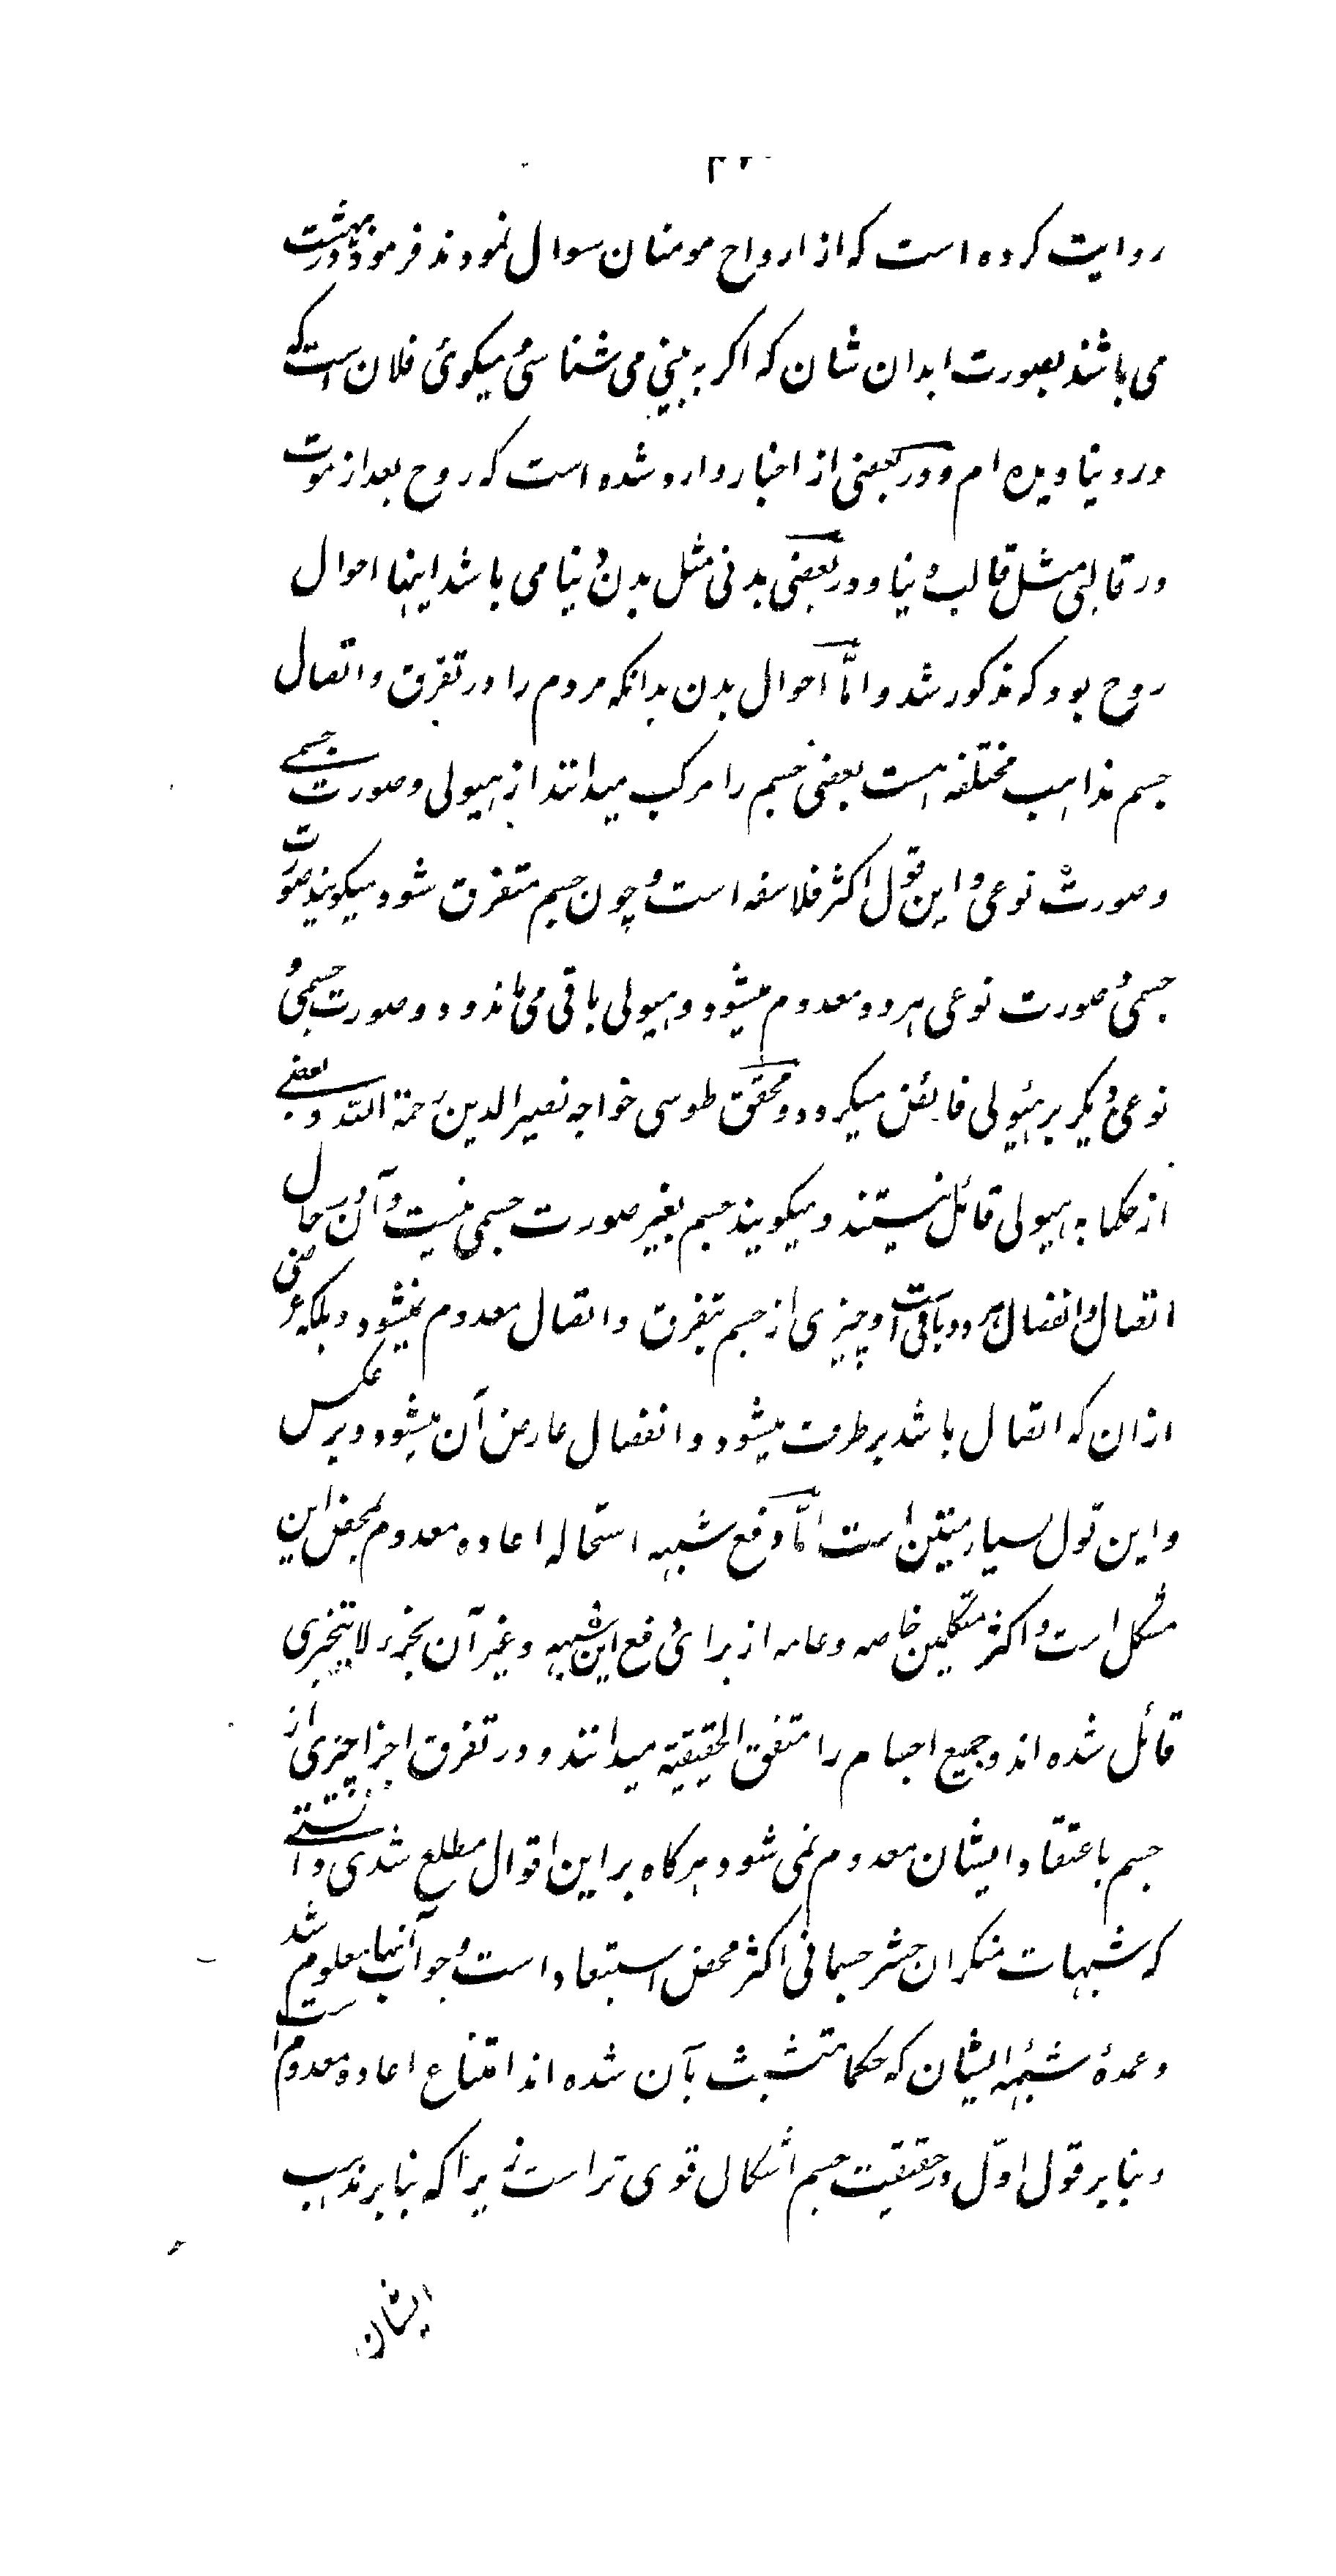 روایت کرده است که از ارواح مومنان سوال نمودند فرمود در بهشت
می باشند بصورت ابدان شان که اکر به بینی می شناسی و میکوئی فلان است که
در دنیا دیده ام و در بعضی از اخبار وارد شده است که روح بعد از موت
در قالبی مثل قالب دنیا و در بعضی بدنی مثل بدن دنیا می باشد اینها احوال
روح بود که مذکور شد و امّا احوال بدن بدانکه مردم را در تفرق و اتصال
جسم مذاهب مختلفه هست بعضی جسم را مرکب میدانند از هیولی و صورت جسمی
و صورت نوعی و این قول اکثر فلاسفه است و چون جسم متفرق شود میکویند صورت
جسمی و صورت نوعی هر دو معدوم میشود و هیولی باقی می ماند و دو صورت جسمی و
نوعی دیکر بر هیولی فائض میکردد و محقق طوسی خواجه نصیر الدین رحمة اللّه و بعضی
از حکما به هیولی قائل نیستند و میکویند جسم بغیر صورت جسمی نیست و آن در حال
اتصال و انفصال هر دو باقی است و چیزی از جسم بتفرق و اتصال معدوم نمیشود و بلکه عرضی
ازان که اتصال باشد بر طرف میشود و انفصال عارض آن میشود و بر عکس
و این قول بسیار متین است امّا دفع شبهه استحاله اعاده معدوم بمحض این
مشکل است و اکثر متکلمین خاصه و عامه از برای دفع این شبهه و غیر آن بجزء لا یتجزی
قائل شده اند و جمیع اجسام را متفق الحقیقیة میدانند و در تفرق اجزا چیزی از
جسم باعتقاد ایشان معدوم نمی شود و هر کاه بر این اقوال مطلع شدی دانستی
که شبهات منکران حشر جسمانی اکثر محض استبعاد است و جواب آنها معلوم شد
و عمدهٔ شبهٔه ایشان که حکما متشبث بآن شده اند امتناع اعادهٔ معدوم است
و بنا بر قول اوّل در حقیقیت جسم اشکال قوی تر است زیرا که بنا بر مذهب
ایشان